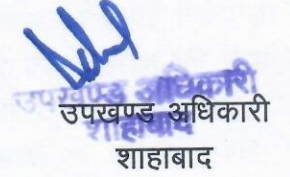 उपखण्ड अधिकारी
शाहाबाद
उपखण्ड अधिकारी
शाहाबाद